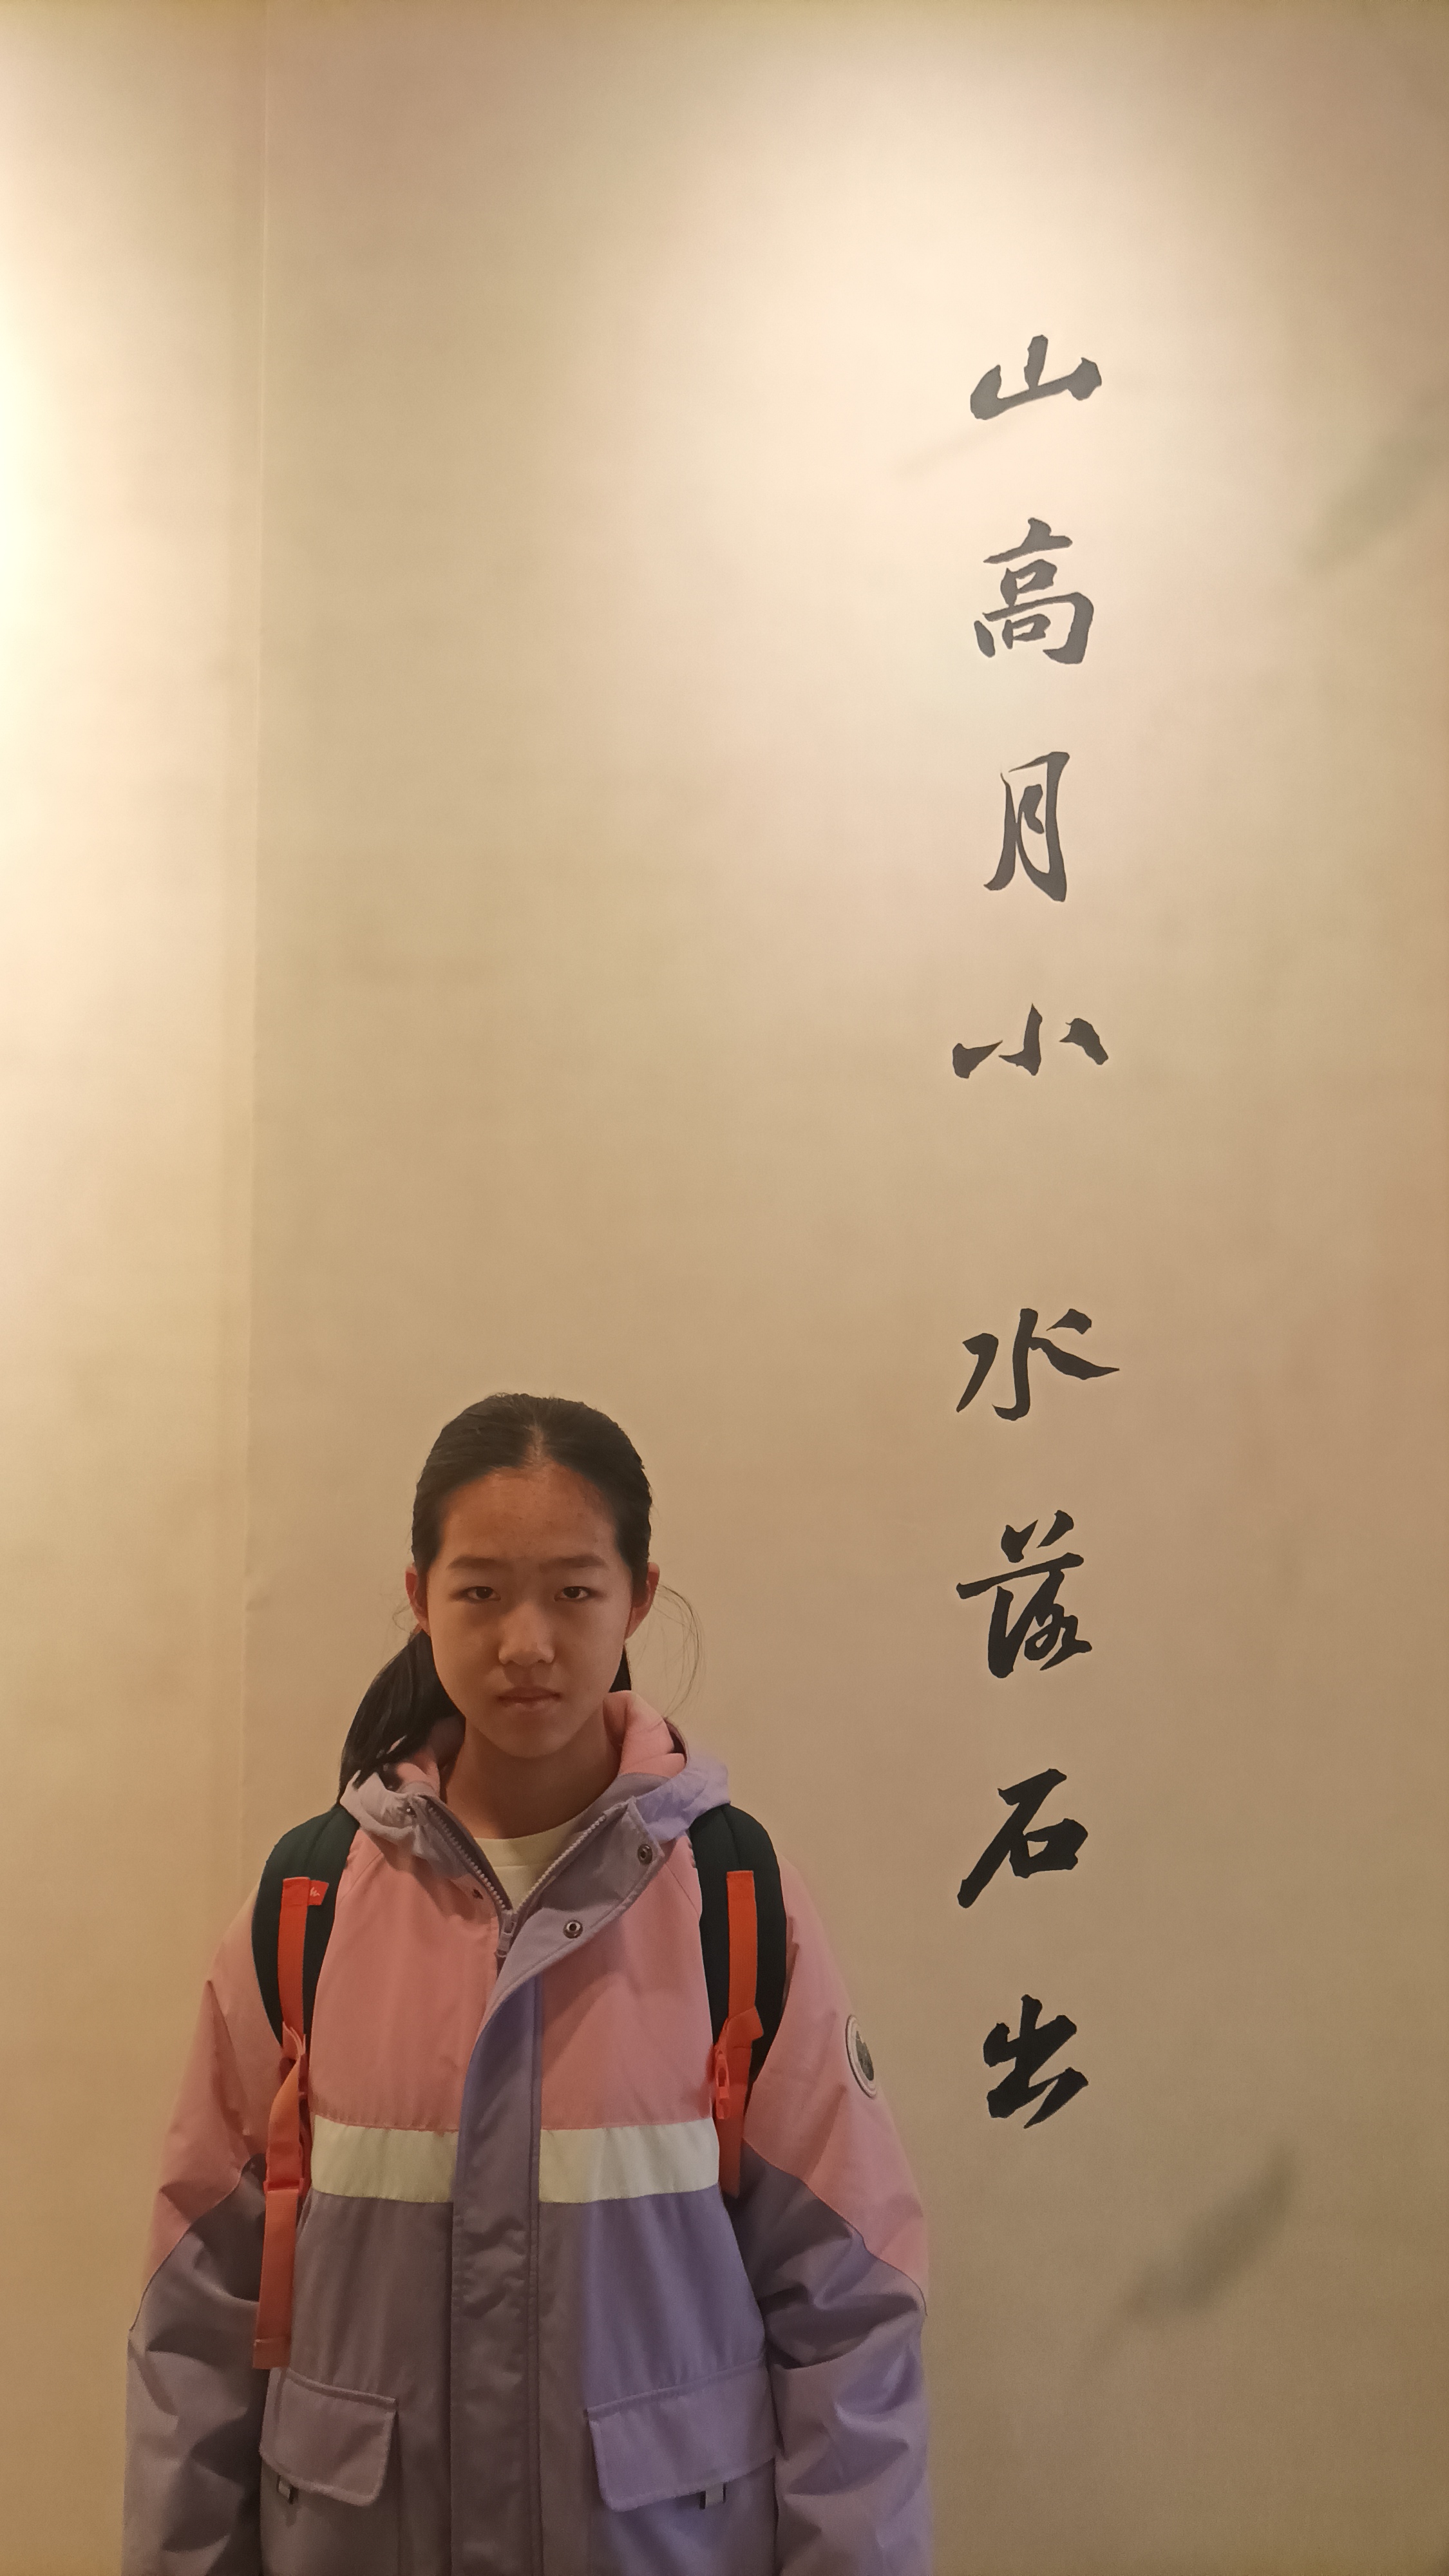 山高月小 水落石出